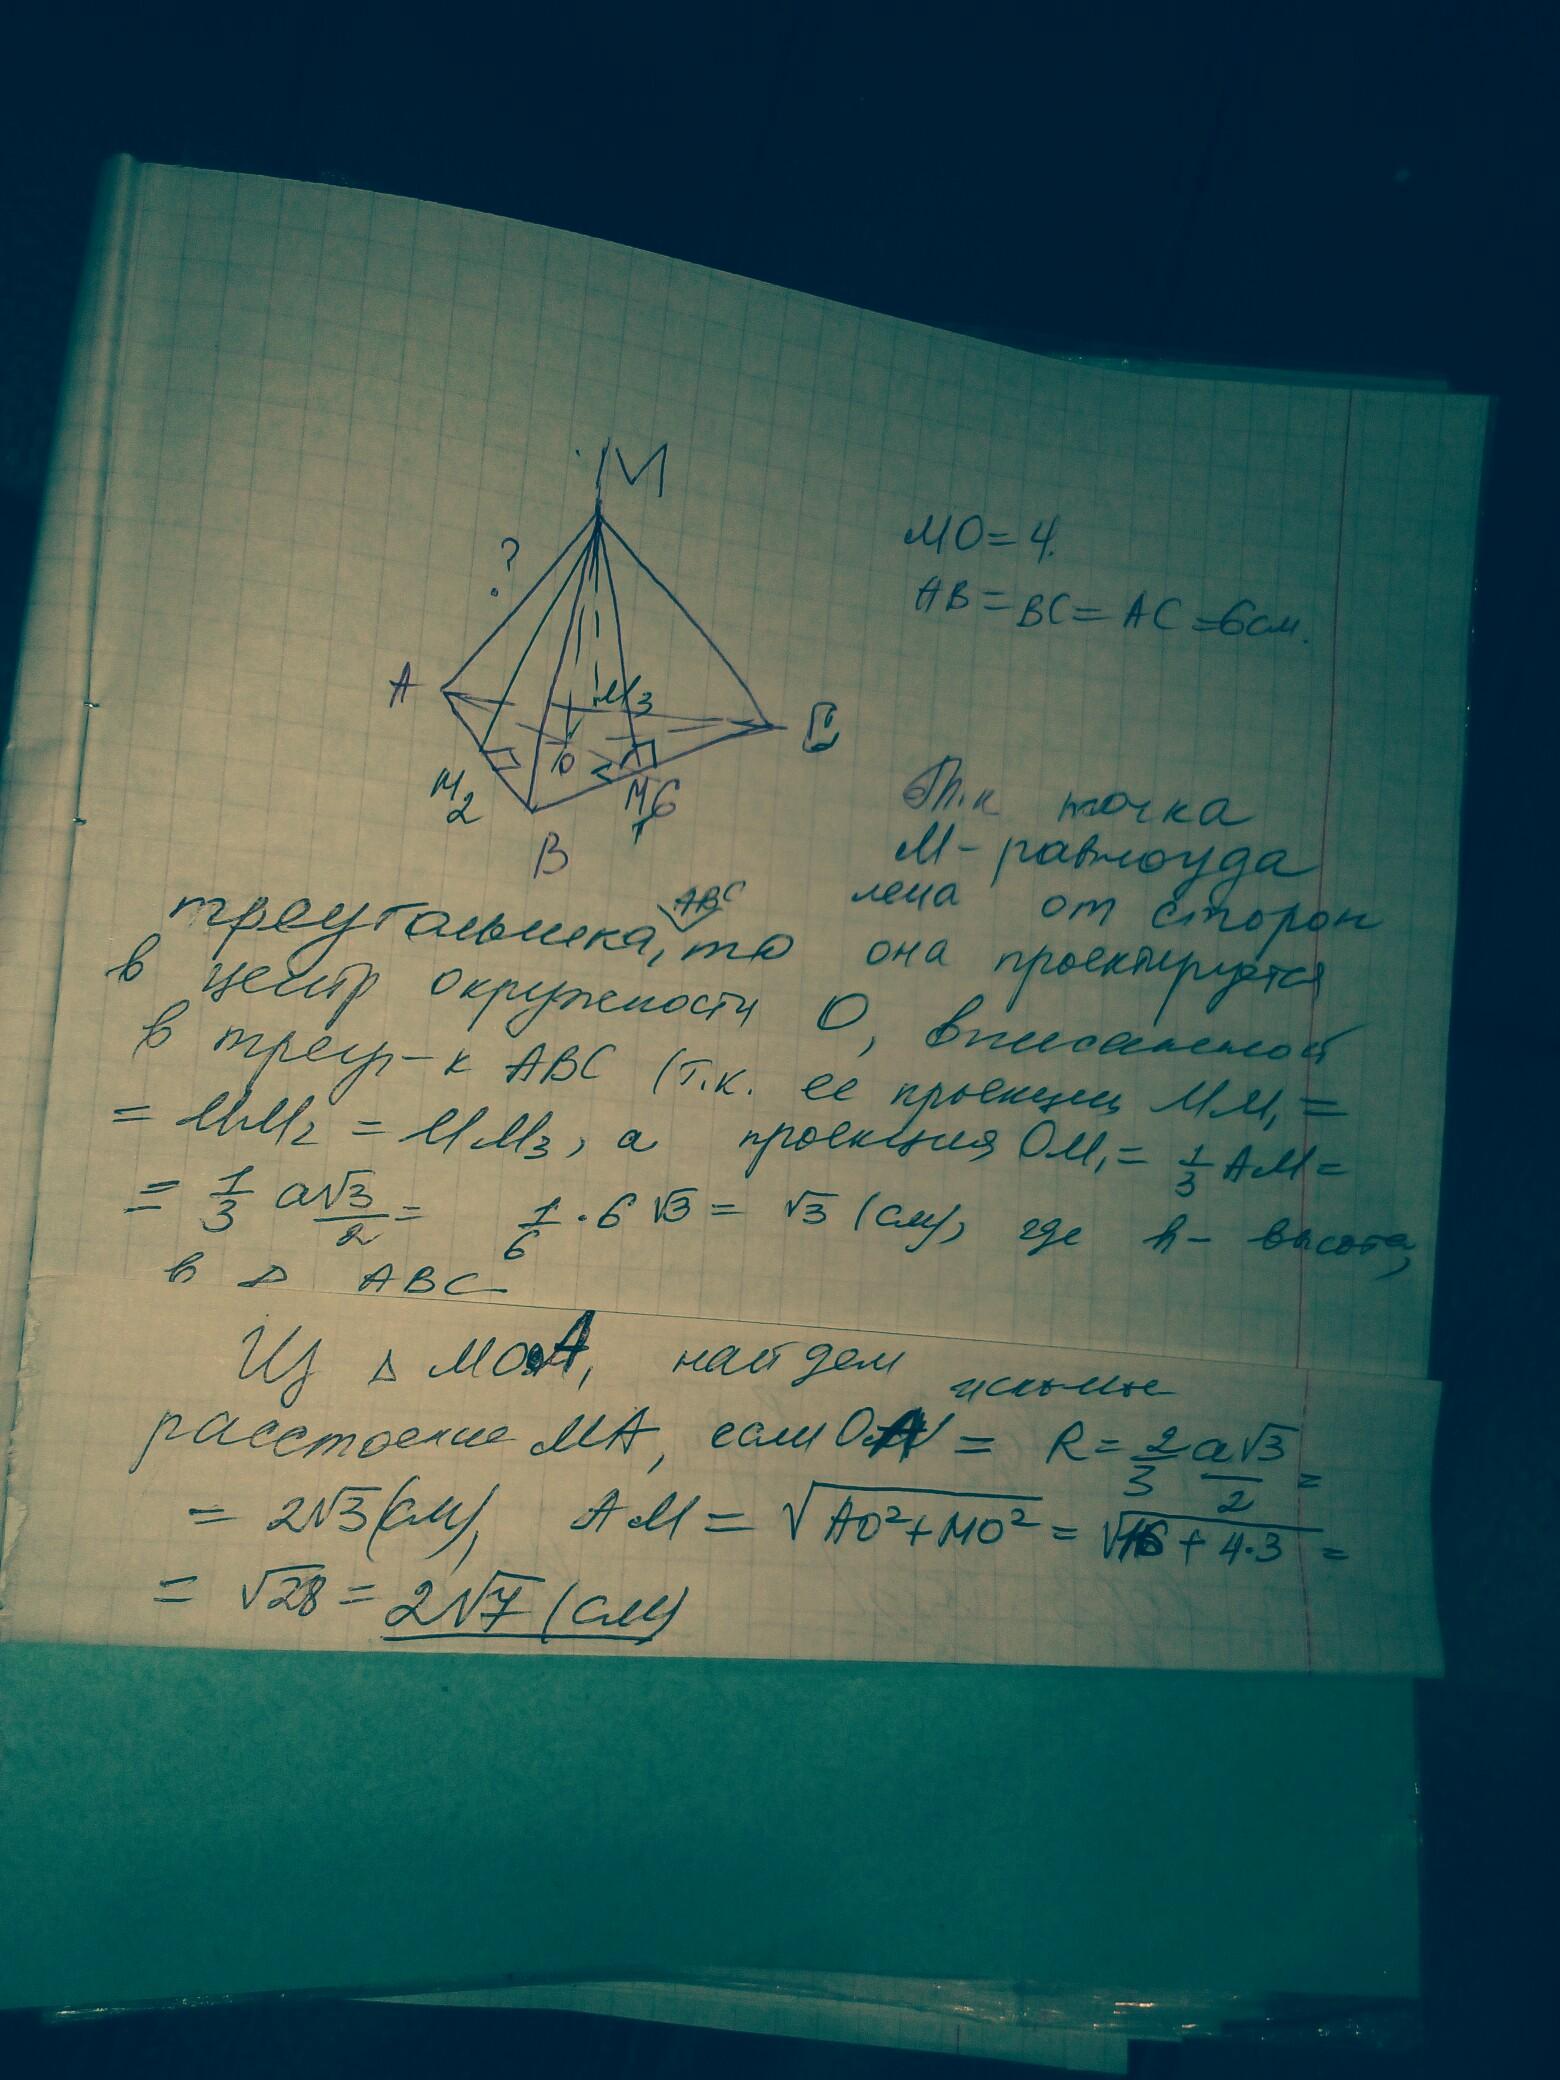 M
?
MO = 4.
AB = BC = AC = 6 см.
A
M3
C
O
M2
M1 6
B
Т.к точка
M - равноуда
лена от сторон
треугольника, ABC то она проектируется
в центр окружности O, вписанной
в треуг-к ABC (т.к. ее проекции MM₁ =
= MM₂ = MM₃, а проекция OM₁ = 1/3 AM =
= 1/3 a√3/2 = 1/6 · 6 √3 = √3 (см), где h - высота,
в △ ABC
Из △ MOA, найдем искомое
расстояние MA, если OA = R = 2/3 a√3/2 =
= 2√3 (см), AM = √AO²+MO² = √16 + 4·3 =
= √28 = 2√7 (см)